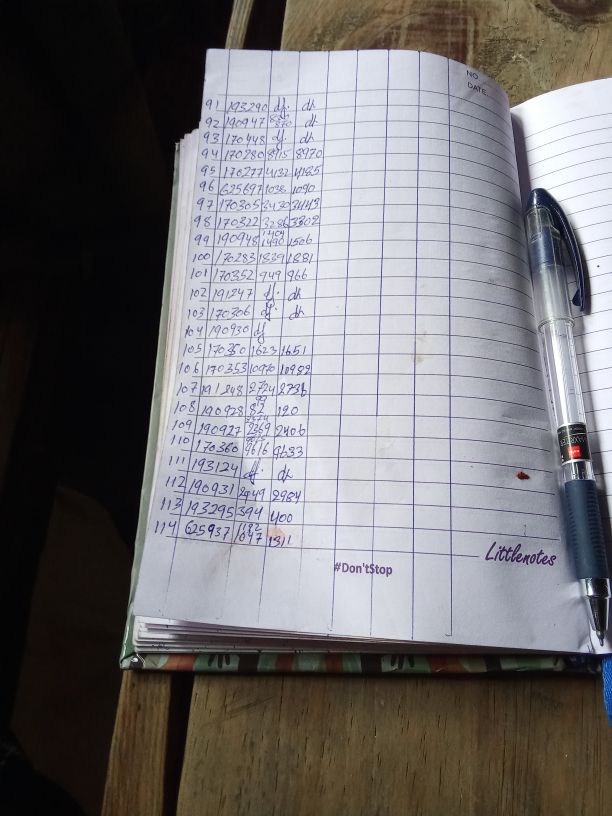 NO
DATE
91 193290 df. df
92 190947 870 df
93 170448 df df
94 170280 8915 8970
95 170277 4132 4185
96 625697 1038 1090
97 170305 3430 3449
98 170322 3286 3302
99 190948 1490 1506
100 170283 1839 1881
101 170352 949 966
102 191247 df. df
103 170306 df. df
104 190930 df
105 170350 1623 1651
106 170353 10970 10982
107 191248 2724 2736
108 190928 99 82 120
109 190927 2374 2369 2406
110 170360 9616 9633
111 193124 df. df
112 190931 2949 2984
113 193295 394 400
114 625937 1682 1647
Littlenotes
#Don'tStop